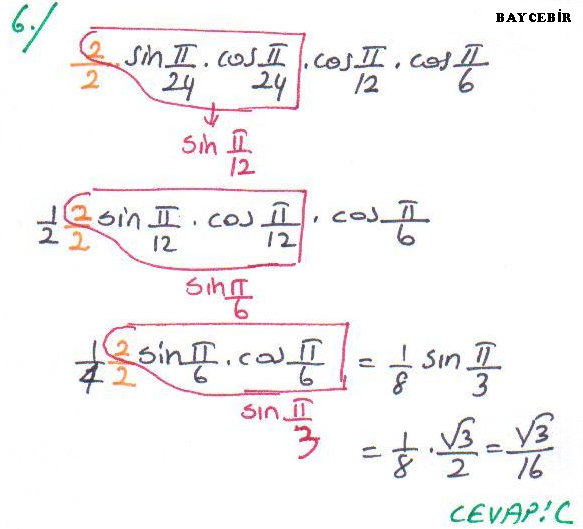 6./ BAYCEBİR
2/2 . sin π/24 . cos π/24 . cos π/12 . cos π/6
sin π/12
1/2 2/2 sin π/12 . cos π/12 . cos π/6
sin π/6
1/4 2/2 sin π/6 . cos π/6 = 1/8 sin π/3
sin π/3
= 1/8 . √3/2 = √3/16
CEVAP: C